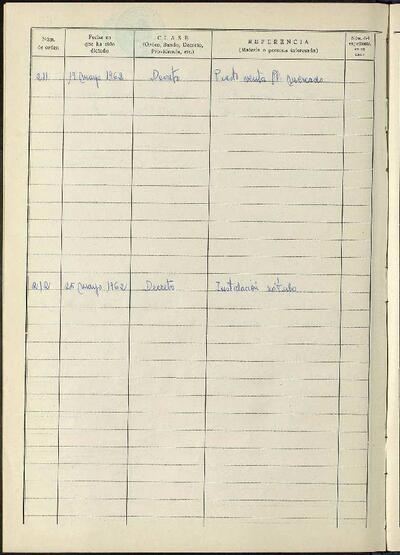 Núm. de orden
Fecha en que ha sido dictado
CLASE
(Orden, Bando, Decreto, Providencia, etc.)
REFERENCIA
(Materia o persona interesada)
Núm. del expediente en su caso
211 19 mayo 1962 Decreto venta mercado
212 25 mayo 1962 Decreto Instalación